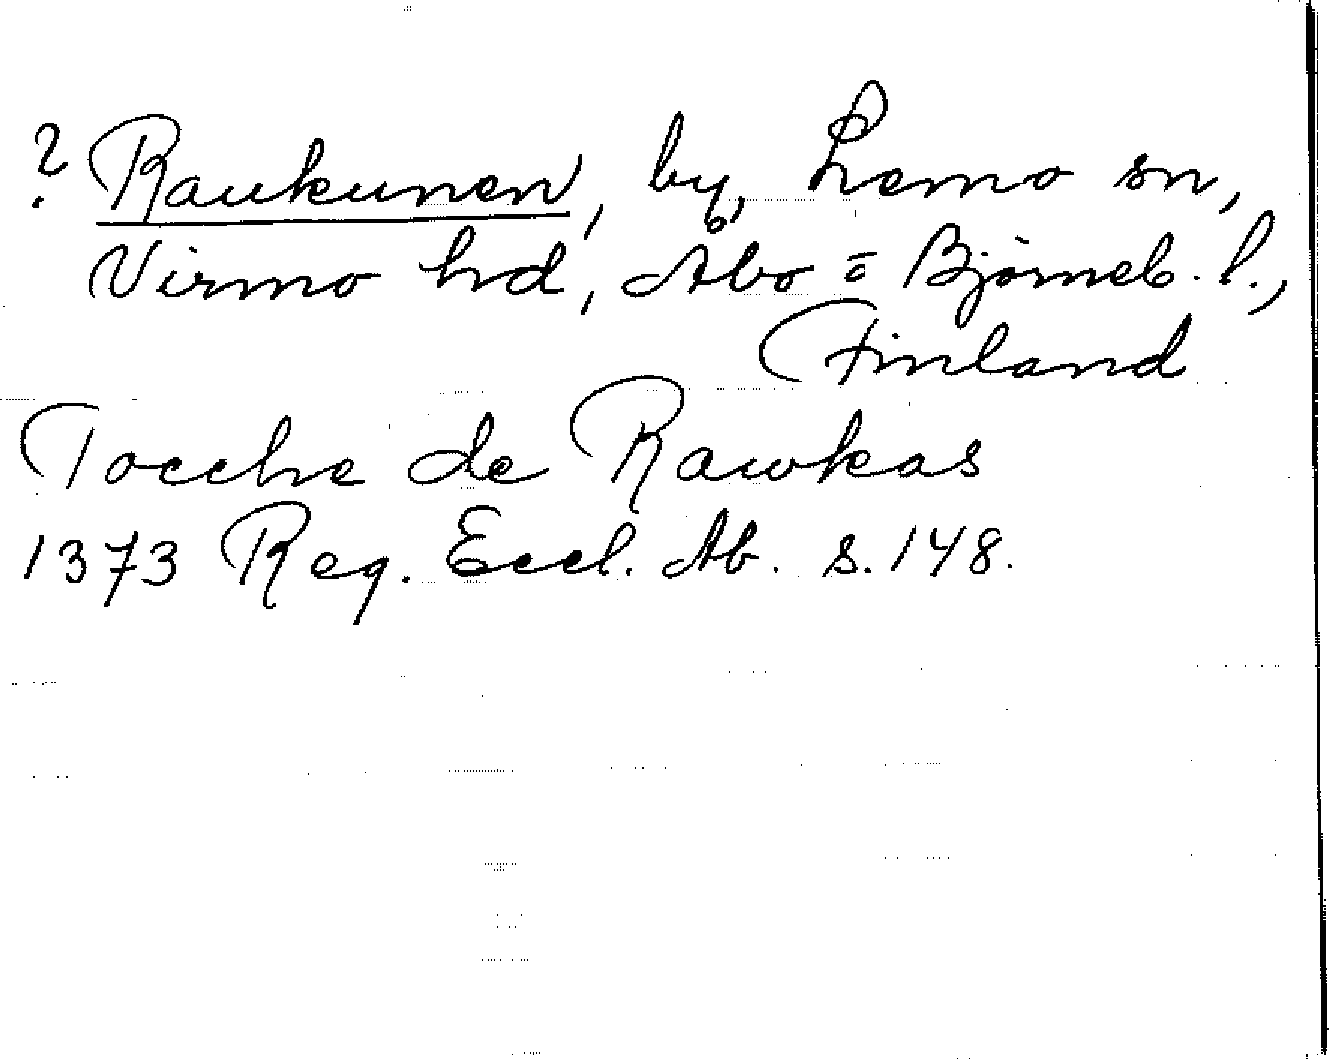 ? Raukunen, by, Lemo sn,
Virmo hd, Åbo = Björneb. l.,
Finland
Tocche de Rawkas
1373 Reg. Eccl. Ab. s. 148.